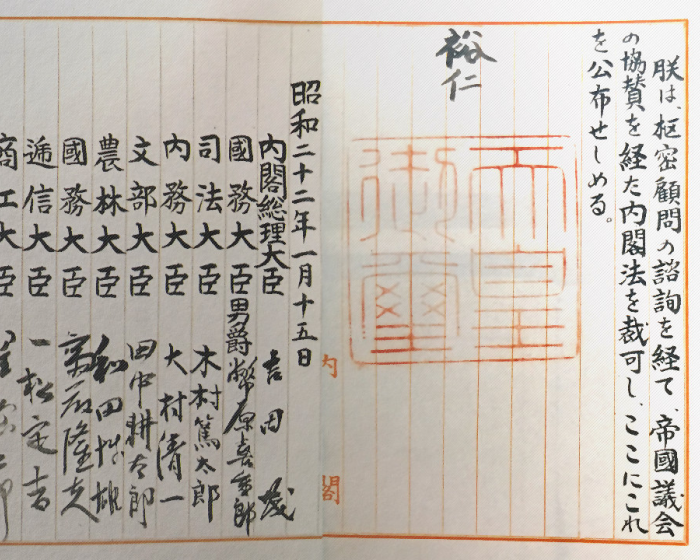 朕は、枢密顧問の諮詢を経て、帝國議会
の協賛を経た内閣法を裁可し、ここにこれ
を公布せしめる。
裕仁
天皇
御璽
内閣
昭和二十二年一月十五日
内閣総理大臣 吉田茂
國務大臣男爵幣原喜重郎
司法大臣 木村篤太郎
内務大臣 大村清一
文部大臣 田中耕太郎
農林大臣 和田博雄
國務大臣 斎藤隆夫
逓信大臣 一松定吉
商工大臣 星島二郎